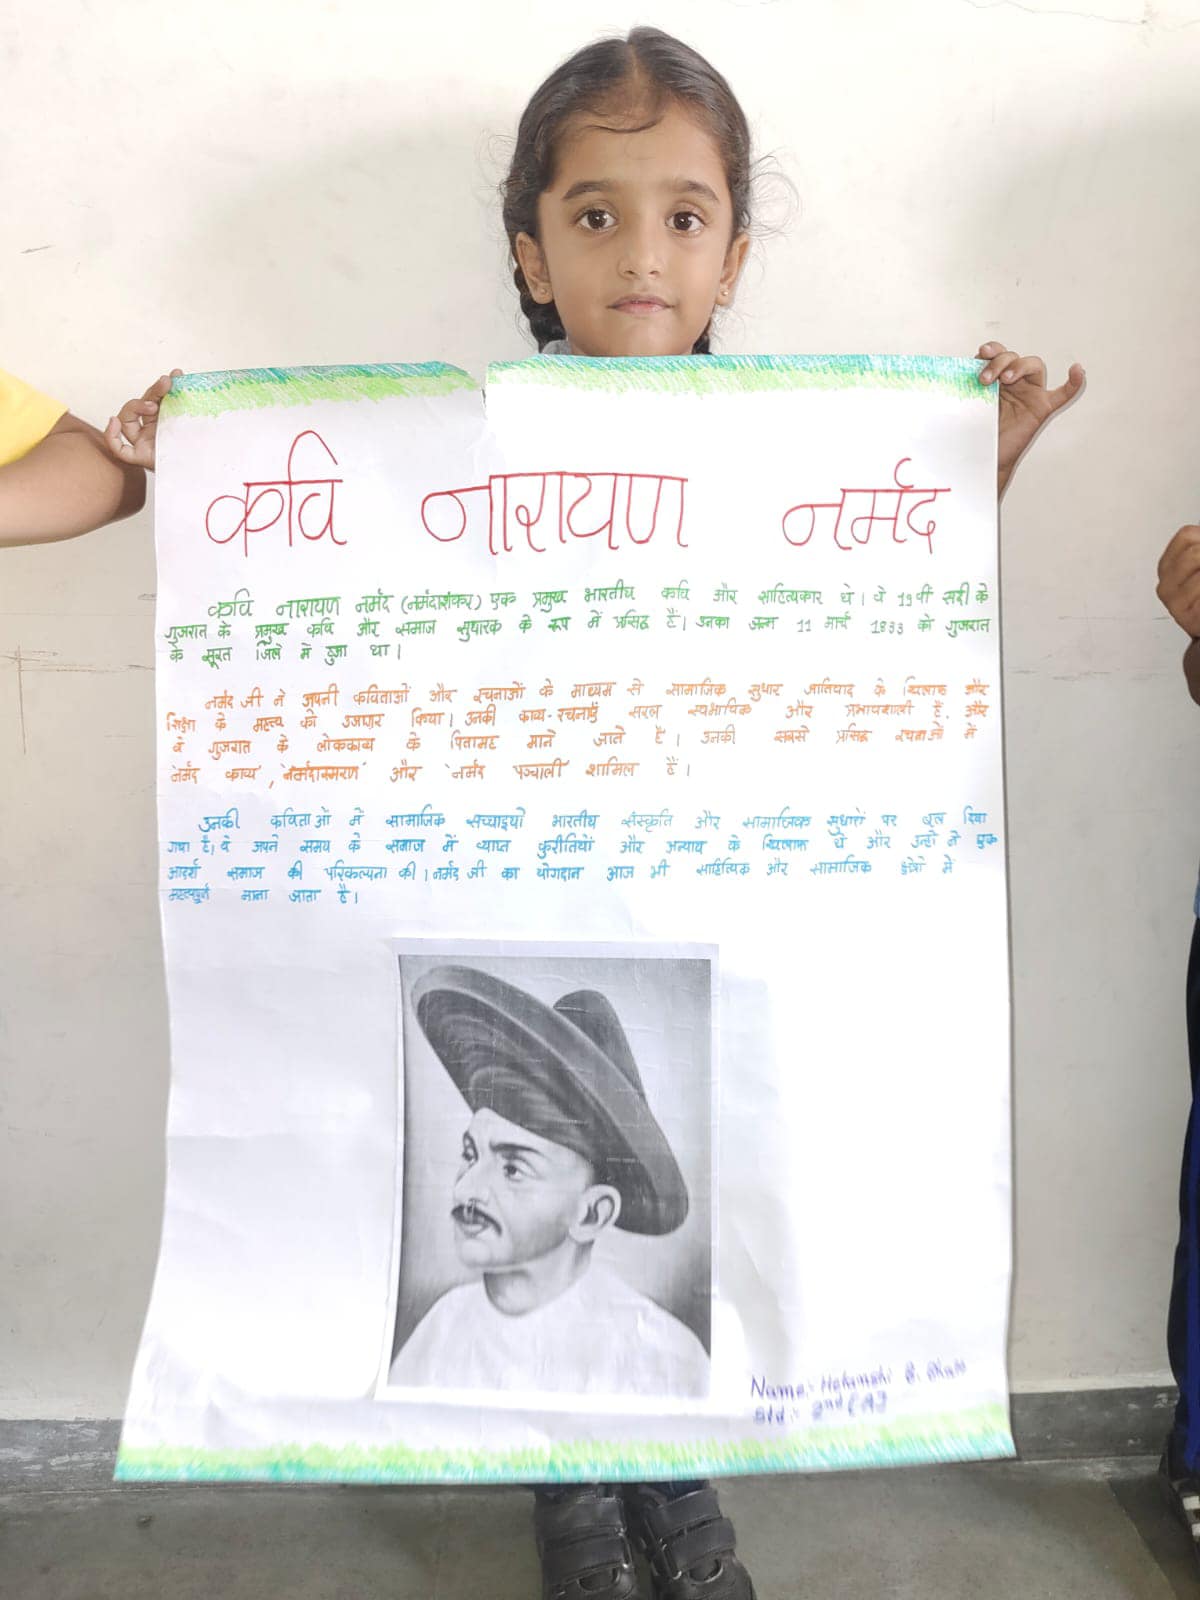 कवि नारायण नर्मद
कवि नारायण नर्मद (नर्मदाशंकर) एक प्रमुख भारतीय कवि और साहित्यकार थे। वे 19वीं सदी के
गुजरात के प्रमुख कवि और समाज सुधारक के रूप में प्रसिद्ध हैं। उनका जन्म 11 मार्च 1833 को गुजरात
के सूरत जिले में हुआ था।
नर्मद जी ने अपनी कविताओं और रचनाओं के माध्यम से सामाजिक सुधार जातिवाद के खिलाफ और
शिक्षा के महत्व को उजागर किया। उनकी काव्य-रचनाएँ सरल स्वभाविक और प्रभावशाली हैं, और
वे गुजरात के लोककाव्य के पितामह माने जाते हैं। उनकी सबसे प्रसिद्ध रचनाओं में
'नर्मद काव्य', 'नर्मदास्मरण' और 'नर्मद पञ्चाली' शामिल हैं।
उनकी कविताओं में सामाजिक सच्चाइयों भारतीय संस्कृति और सामाजिक सुधारों पर बल दिया
गया है। वे अपने समय के समाज में व्याप्त कुरीतियों और अन्याय के खिलाफ थे और उन्हों ने एक
आदर्श समाज की परिकल्पना की। नर्मद जी का योगदान आज भी साहित्यिक और सामाजिक क्षेत्रों में
महत्वपूर्ण माना जाता है।
Name:- B. Bhatt
Std:- 2nd (A)